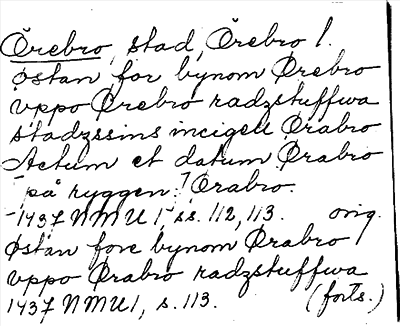 Örebro, stad, Örebro l.
østan for bynom Ørebro
vppo Ørebro radzstuffwa
stadzssins incigell Ørabro
Actum et datum Ørabro
på ryggen: Ørabro.
1437 NMU 1 ss. 112, 113. orig.
Østan fore bynom Ørabro
vppo Ørabro radzstuffwa
1437 NMU 1, s. 113. (forts.)